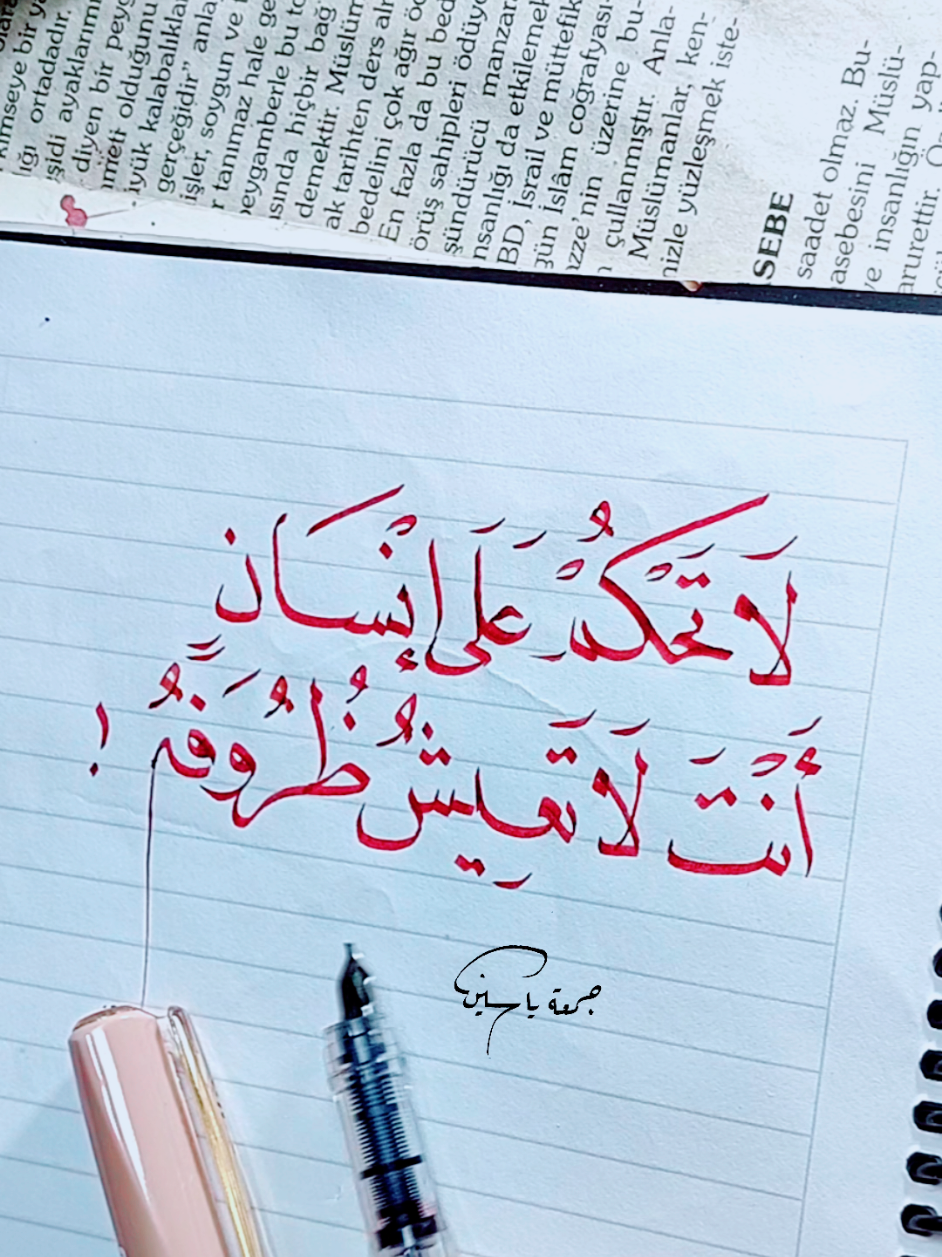 kimseye bir
ortadadır.
ayaklarımı
diyen bir
olduğunu
kalabalıklar
gerçeğidir” anla
işler, soygun ve
tanınmaz hale ge
peygamberle bu to
hiçbir bağ
demektir. Müslüm
ak tarihten ders
bedelini çok ağır
En fazla da bu bed
örüş sahipleri ödüyo
şündürücü manzara
nsanlığı da etkilemek
BD, İsrail ve müttefik
İslâm coğrafyası
azze’nin üzerine bu-
çullanmıştır. Anla-
Müslümanlar, ken-
nizle yüzleşmek iste-
SEBE
saadet olmaz. Bu-
asebesini Müslü-
ve insanlığın yap-
arurettir.
لَا تَحْكُمْ عَلَى إِنْسَانٍ
أَنْتَ لَا تَعِيشُ ظُرُوفَهُ !
جمعة ياسين